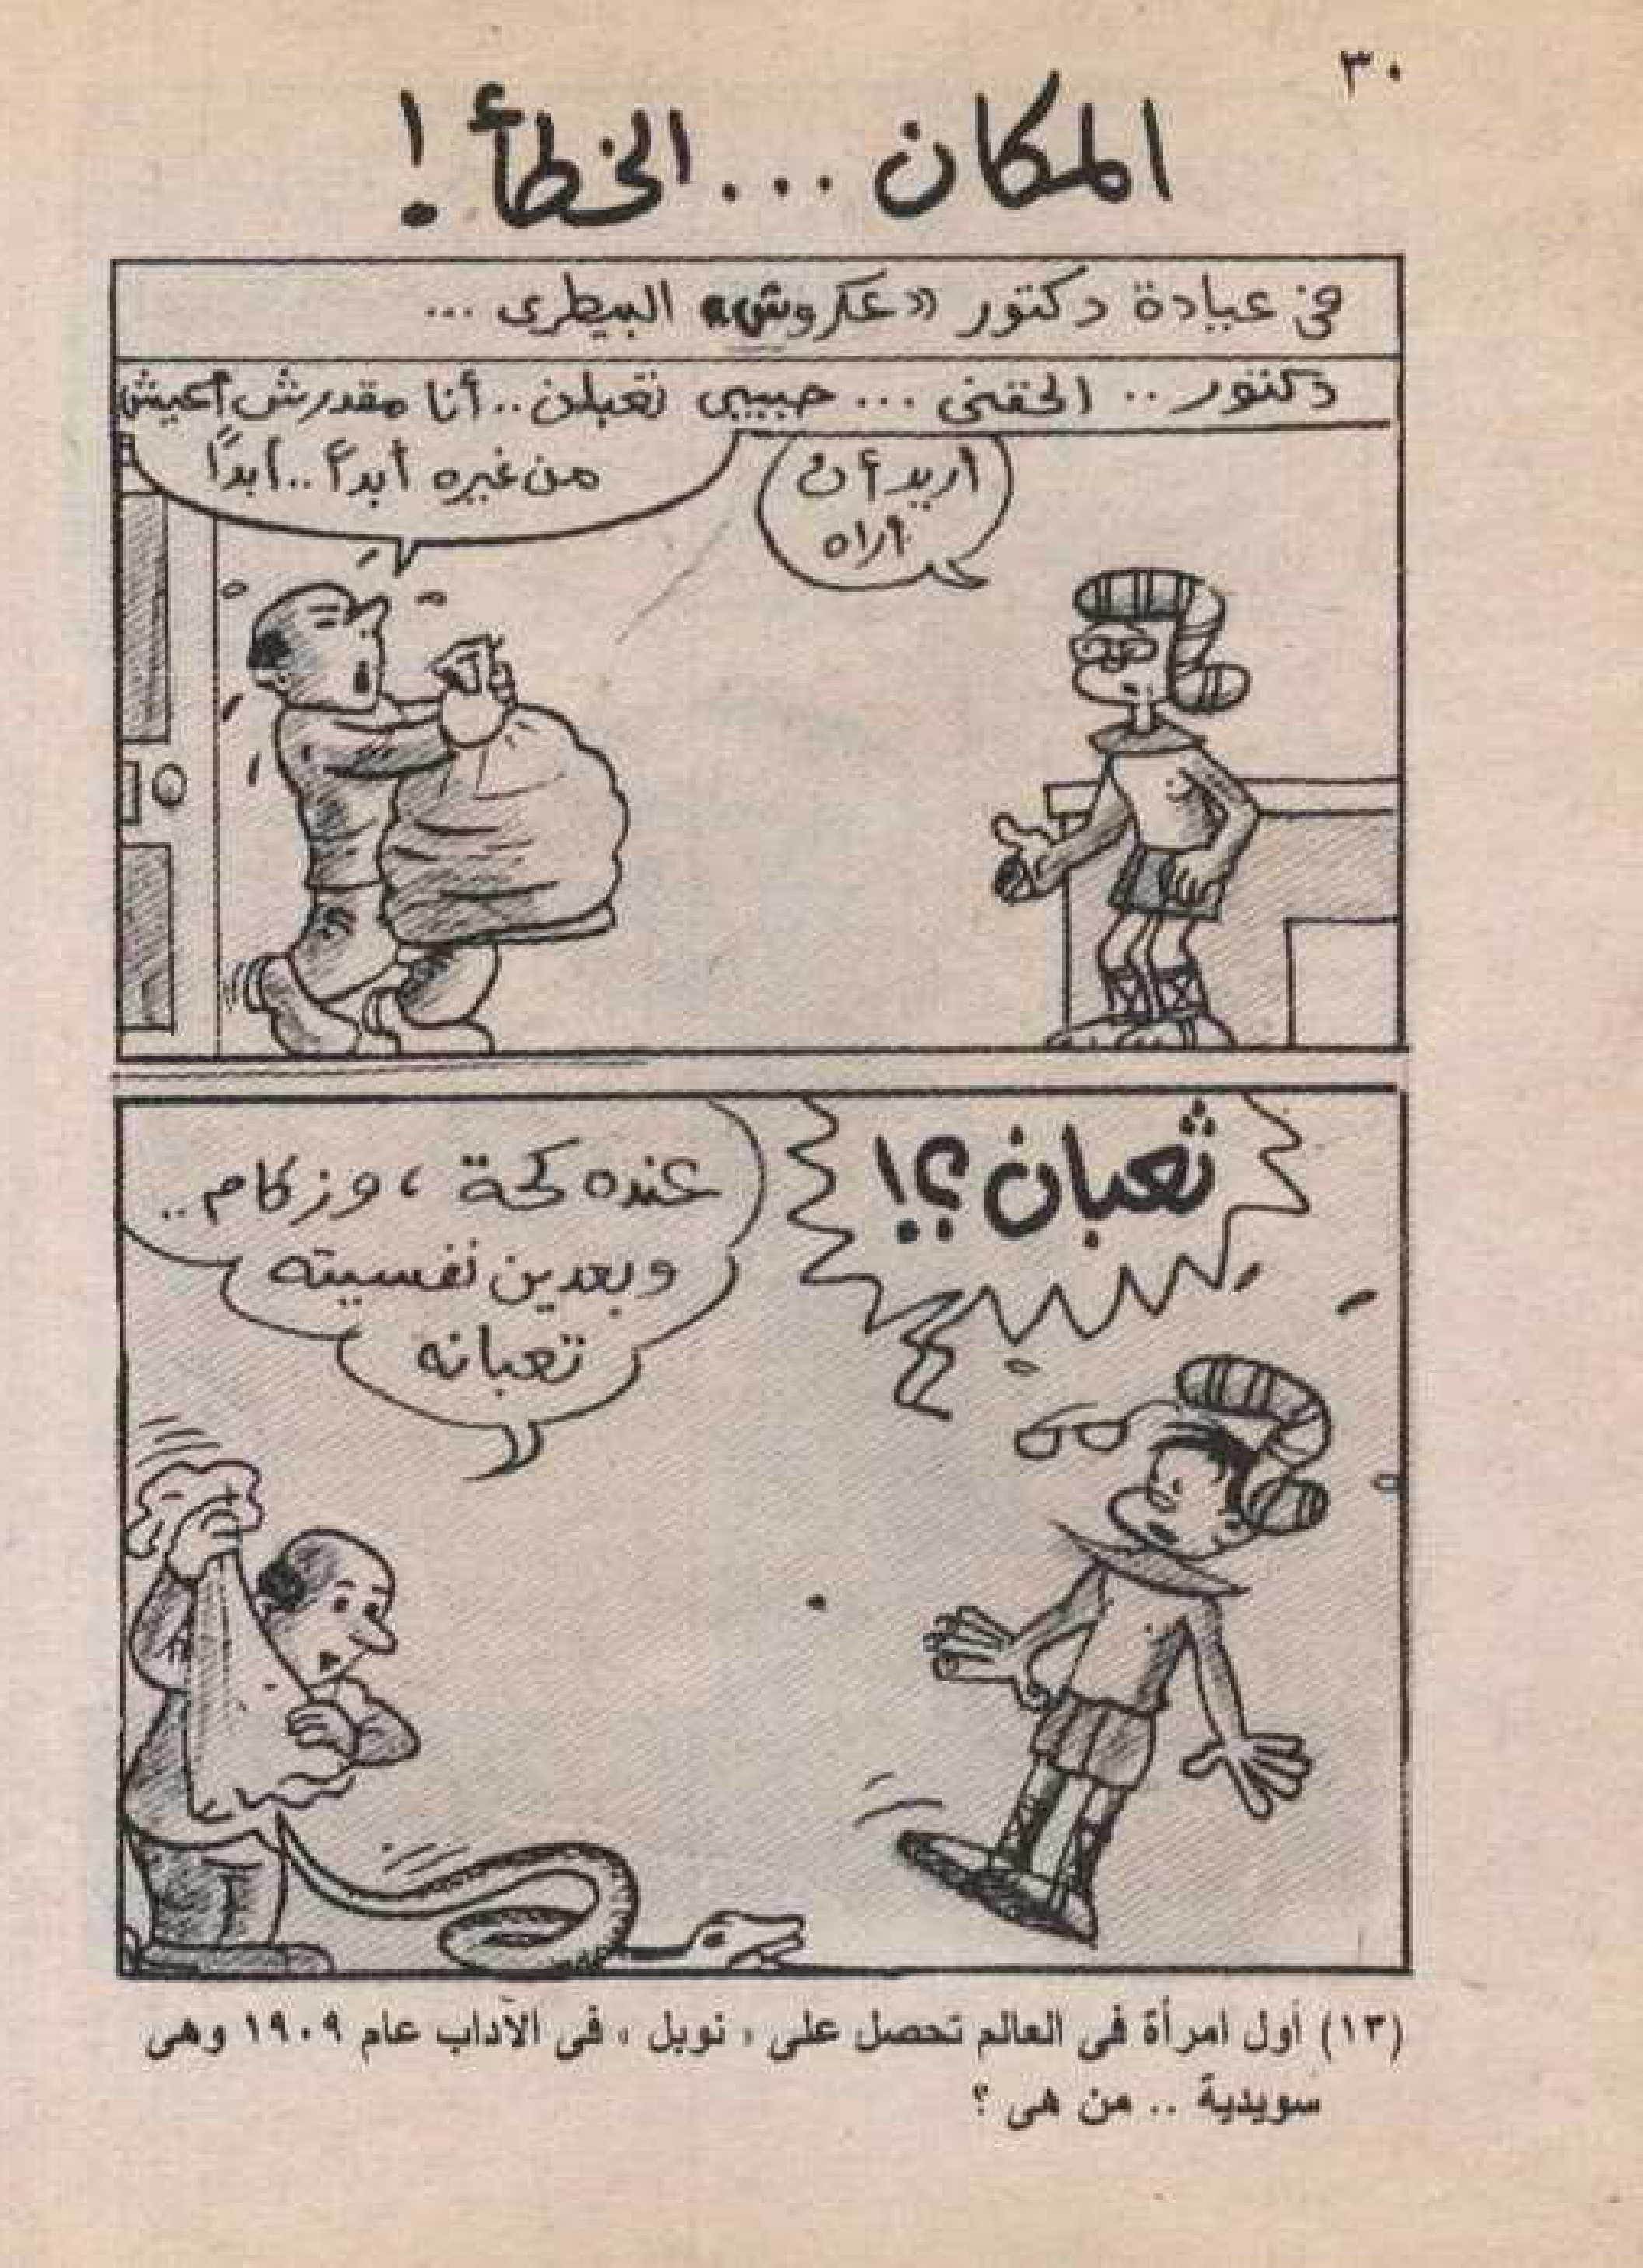 ٣٠
المكان ... الخطأ !
فى عيادة دكتور «عكروش» البيطرى ...
دكتور .. الحقنى ... حبيبى تعبان .. أنا مقدرش أعيش
من غيره أبدأ .. أبدًا
أريد أن
أراه
ثعبان ؟!
عنده كحة ، وزكام ..
وبعدين نفسيته
تعبانه
(١٣) أول امرأة فى العالم تحصل على « نوبل » فى الآداب عام ١٩٠٩ وهى
سويدية .. من هى ؟